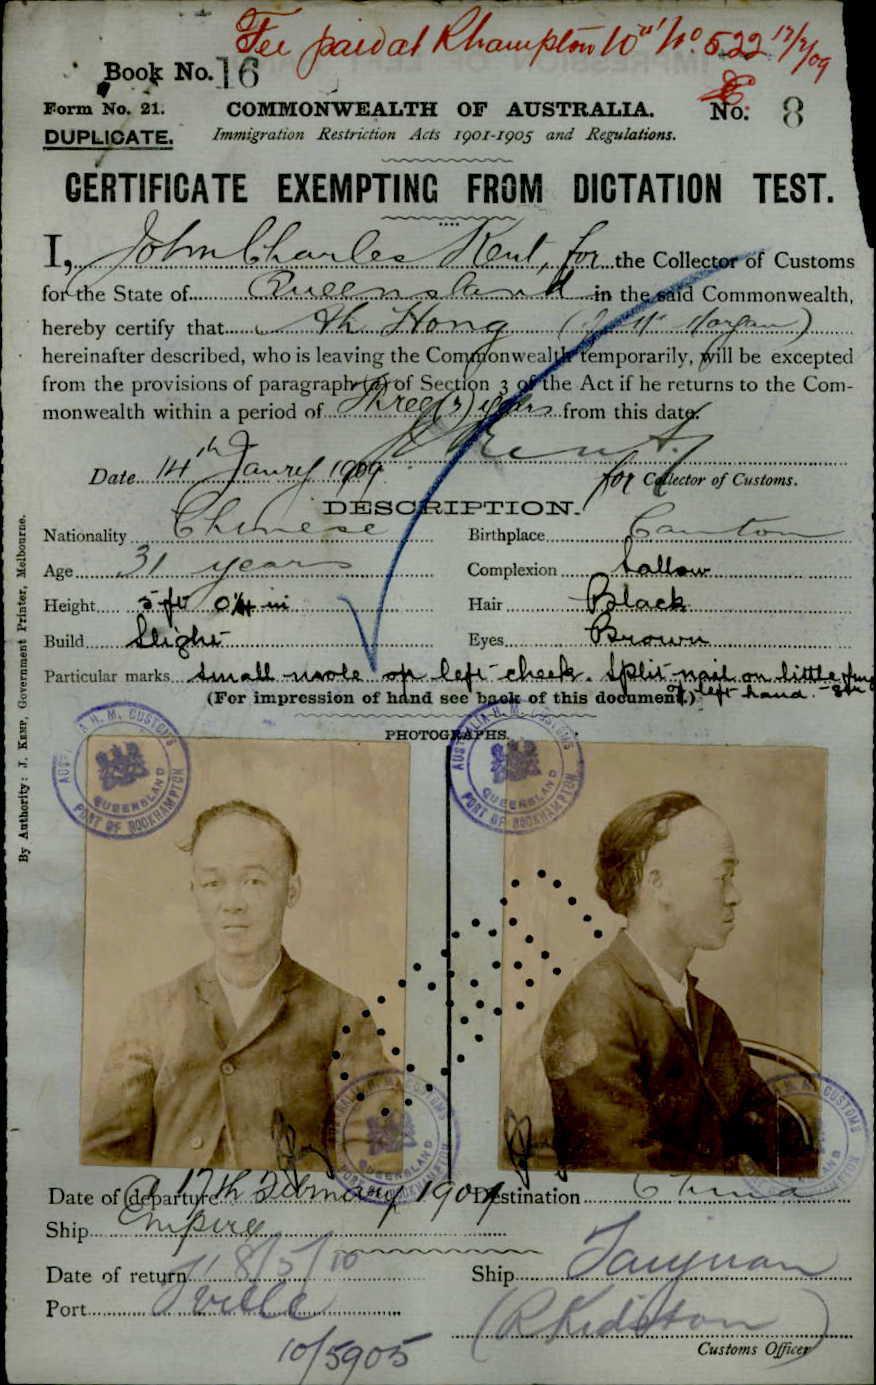 Fee paid at Rhampton 10"/ No 522 12/2/09
Book No. 16
Form No. 21. COMMONWEALTH OF AUSTRALIA. No. 8
DUPLICATE. Immigration Restriction Acts 1901-1905 and Regulations.
CERTIFICATE EXEMPTING FROM DICTATION TEST.
I, John Charles Kent, for the Collector of Customs
for the State of Queensland in the said Commonwealth,
hereby certify that Ah Hong (Morgan)
hereinafter described, who is leaving the Commonwealth temporarily, will be excepted
from the provisions of paragraph (a) of Section 3 of the Act if he returns to the Com-
monwealth within a period of Three (3) years from this date.
J Kent
Date 14th Janry 1909 for Collector of Customs.
DESCRIPTION.
Nationality Chinese Birthplace Canton
Age 31 years Complexion Sallow
Height 5 ft 0¼ in Hair Black
Build Slight Eyes Brown
Particular marks small mole on left cheek. Split nail on little fing
of left hand.
(For impression of hand see back of this document.)
PHOTOGRAPHS.
AUSTRALIA H. M. CUSTOMS QUEENSLAND PORT OF ROCKHAMPTON
AUSTRALIA H. M. CUSTOMS QUEENSLAND PORT OF ROCKHAMPTON
AUSTRALIA H. M. CUSTOMS QUEENSLAND PORT OF ROCKHAMPTON
CUSTOMS QUEENSLAND ROCKHAMPTON
By Authority: J. KEMP, Government Printer, Melbourne.
Date of departure 17th February 1909 Destination China
Ship Empire
Date of return 18/5/10 Ship Taiyuan
Port Tville (R Kidston)
10/5905 Customs Officer